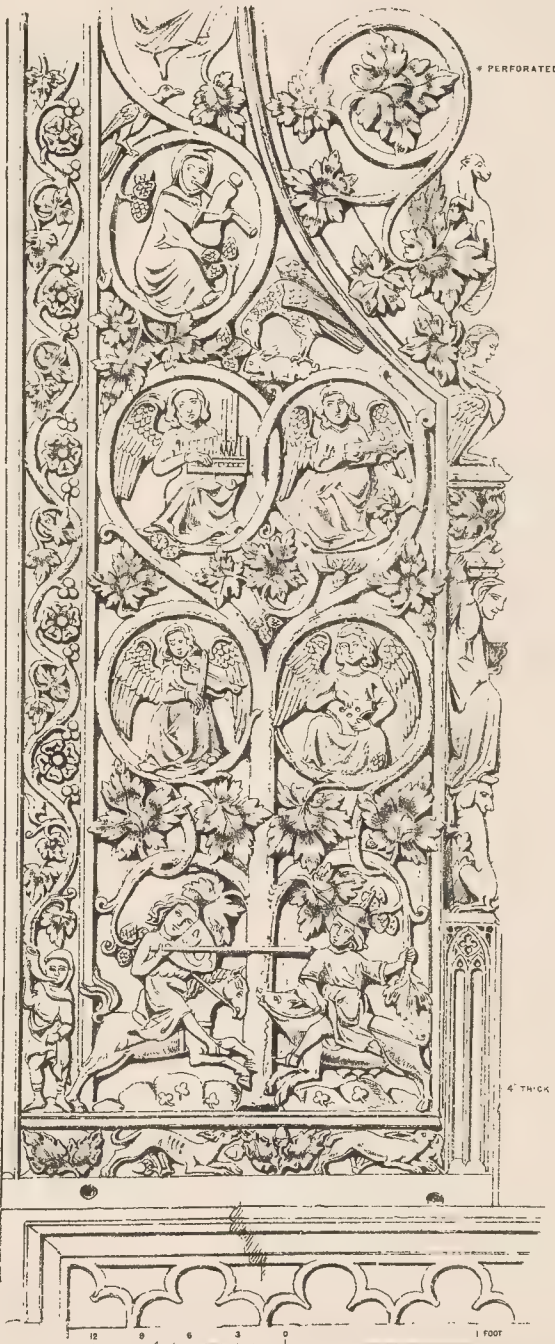 * PERFORATED
4" THICK
12 9 6 3 0 1 FOOT